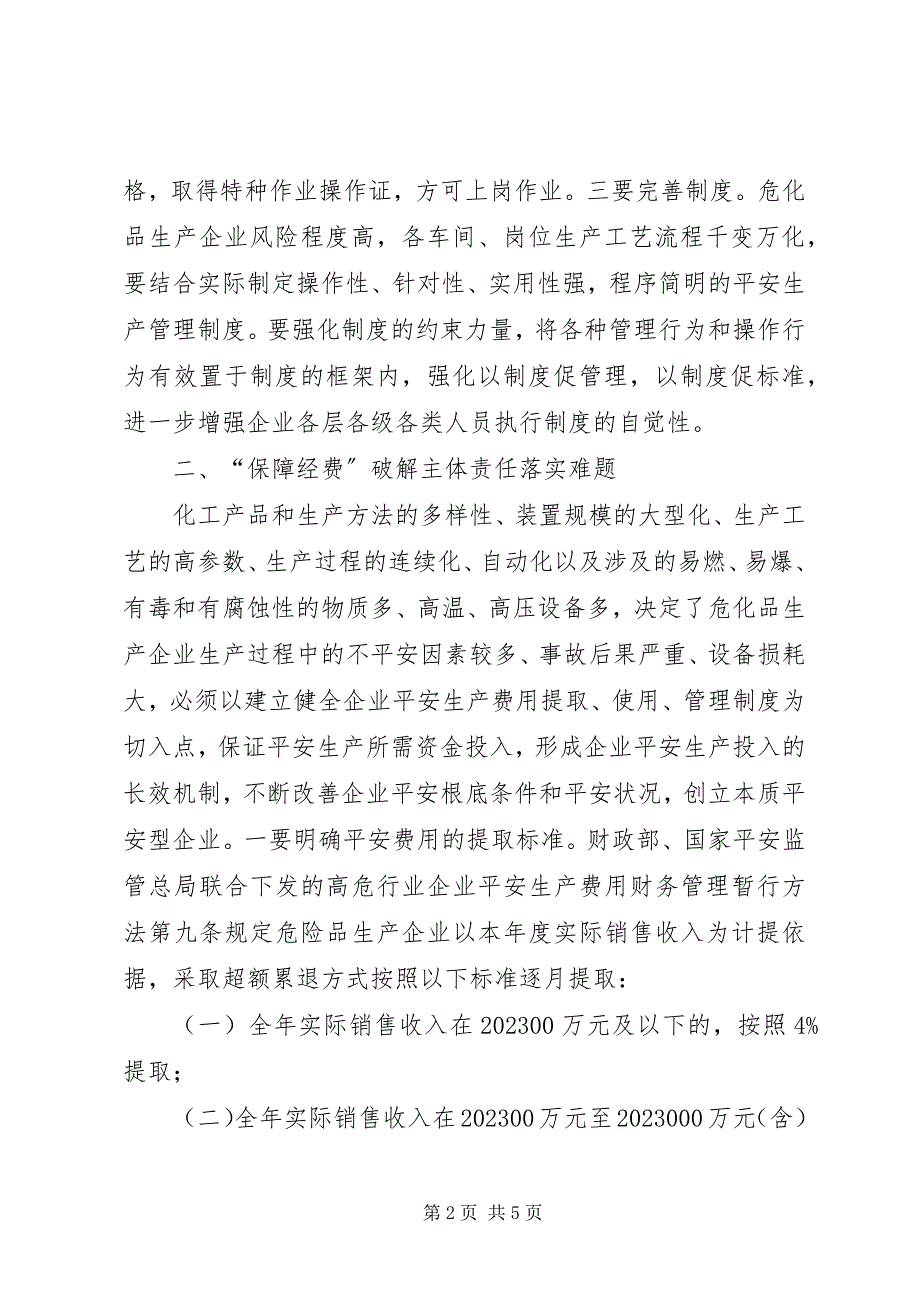 格，取得特种作业操作证，方可上岗作业。三要完善制度。危化
品生产企业风险程度高，各车间、岗位生产工艺流程千变万化，
要结合实际制定操作性、针对性、实用性强，程序简明的平安生
产管理制度。要强化制度的约束力量，将各种管理行为和操作行
为有效置于制度的框架内，强化以制度促管理，以制度促标准，
进一步增强企业各层各级各类人员执行制度的自觉性。
二、“保障经费〞破解主体责任落实难题
化工产品和生产方法的多样性、装置规模的大型化、生产工
艺的高参数、生产过程的连续化、自动化以及涉及的易燃、易爆、
有毒和有腐蚀性的物质多、高温、高压设备多，决定了危化品生
产企业生产过程中的不平安因素较多、事故后果严重、设备损耗
大，必须以建立健全企业平安生产费用提取、使用、管理制度为
切入点，保证平安生产所需资金投入，形成企业平安生产投入的
长效机制，不断改善企业平安根底条件和平安状况，创立本质平
安型企业。一要明确平安费用的提取标准。财政部、国家平安监
管总局联合下发的高危行业企业平安生产费用财务管理暂行方
法第九条规定危险品生产企业以本年度实际销售收入为计提依
据，采取超额累退方式按照以下标准逐月提取：
（一）全年实际销售收入在 202300 万元及以下的，按照 4%
提取；
（二）全年实际销售收入在 202300 万元至 2023000 万元（含）
第 2 页 共 5 页